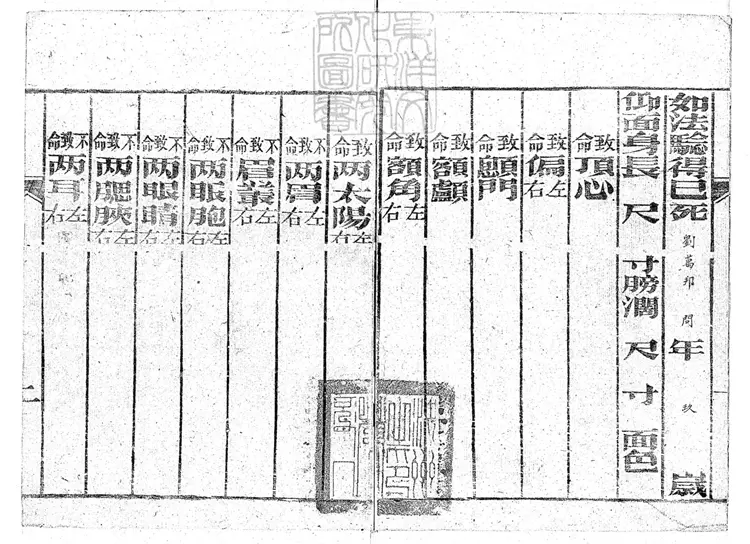 如法驗得已死劉萬邦問年玖歲
仰面身長尺寸膀濶尺寸面色
致命頂心
致命偏左右
致命顖門
致命額顱
致命額角左右
致命两太陽左右
不致命两眉左右
不致命眉叢左右
不致命两眼胞左右
不致命两眼睛左右
不致命两腮脥左右
不致命两耳左右
二